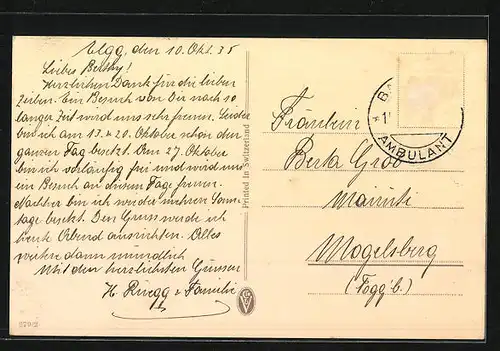 Elgg, den 10. Okt. 35
Liebes Berthy!
Herzlichen Dank für die lieben
Zeilen. Ein Besuch von Dir nach so
langer Zeit wird uns sehr freuen. Leider
bin ich am 13. & 20. Oktober schon den
ganzen Tag besetzt. Den 27. Oktober
bin ich vorläufig frei und wird uns
ein Besuch an diesem Tage freuen.
Nachher bin ich wieder mehrere Sonn-
tage besetzt. Den Gruss werde ich
heute Abend ausrichten. Alles
weitere dann mündlich
Mit den herzlichsten Grüssen
H. Rüegg & Familie
Printed in Switzerland
AMBULANT
Fräulein
Berta Grob
Mogelsberg
(Togg'b.)